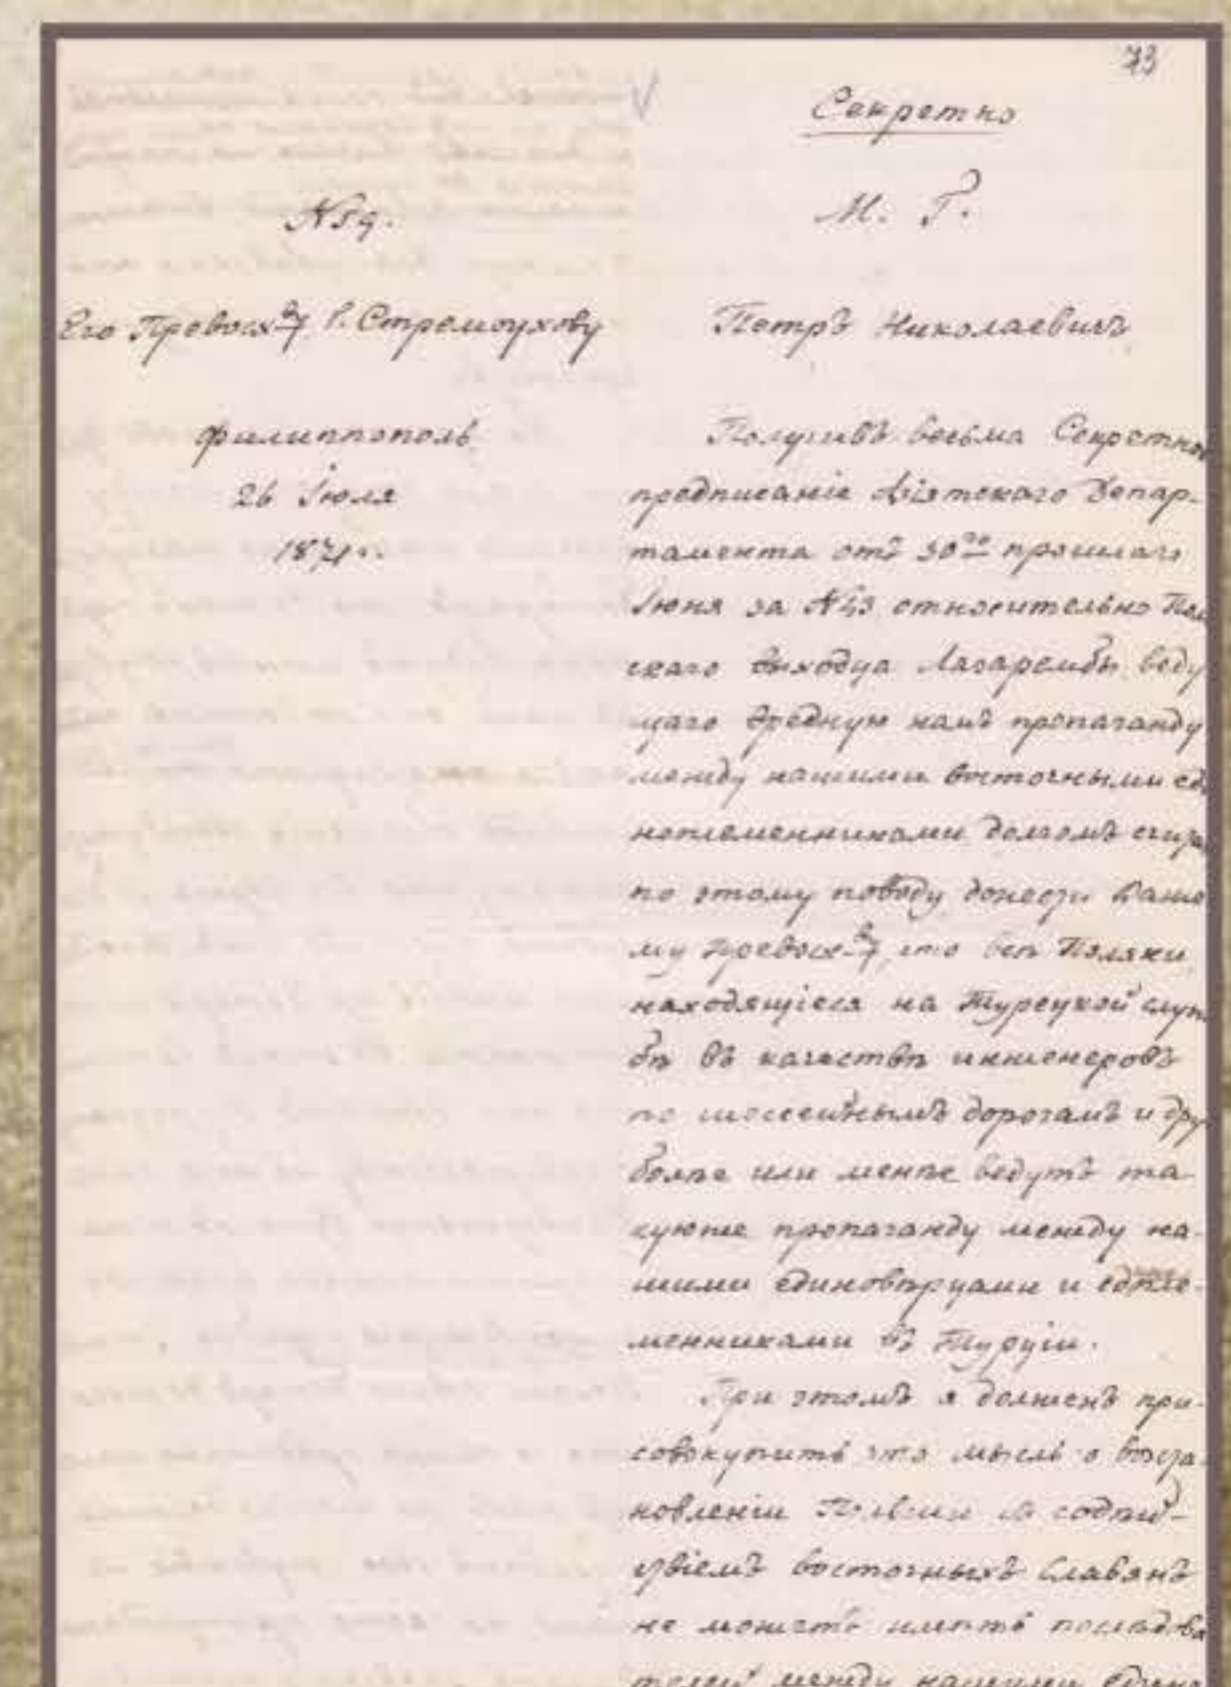 73
Секретно
М. Г.
№59.
Его Превосх-ву г. Стремоухову
Филиппополь
26 Іюля
1871 г.
Петръ Николаевичъ
Получивъ весьма Секретное
предписаніе Азіятскаго Депар-
тамента отъ 30го прошлаго
Іюня за №43 относительно Поль
скаго выходца веду
щаго вредную намъ пропаганду
между нашими восточными еди
ноплеменниками долгомъ счита
по этому поводу донести Ваше
му Превосх-ву, что все Поляки,
находящіеся на Турецкой служ
бѣ въ качествѣ инженеровъ
по шоссейнымъ дорогамъ и др.
болѣе или менѣе ведутъ та
куюже пропаганду между на-
шими единовѣрцами и
менниками въ Турціи.
При этомъ я долженъ при-
совокупить что мысль о возста-
новленіи Польши съ содѣй-
ствіемъ восточныхъ Славянъ
не можетъ имѣть послѣдова
телей между нашими едино